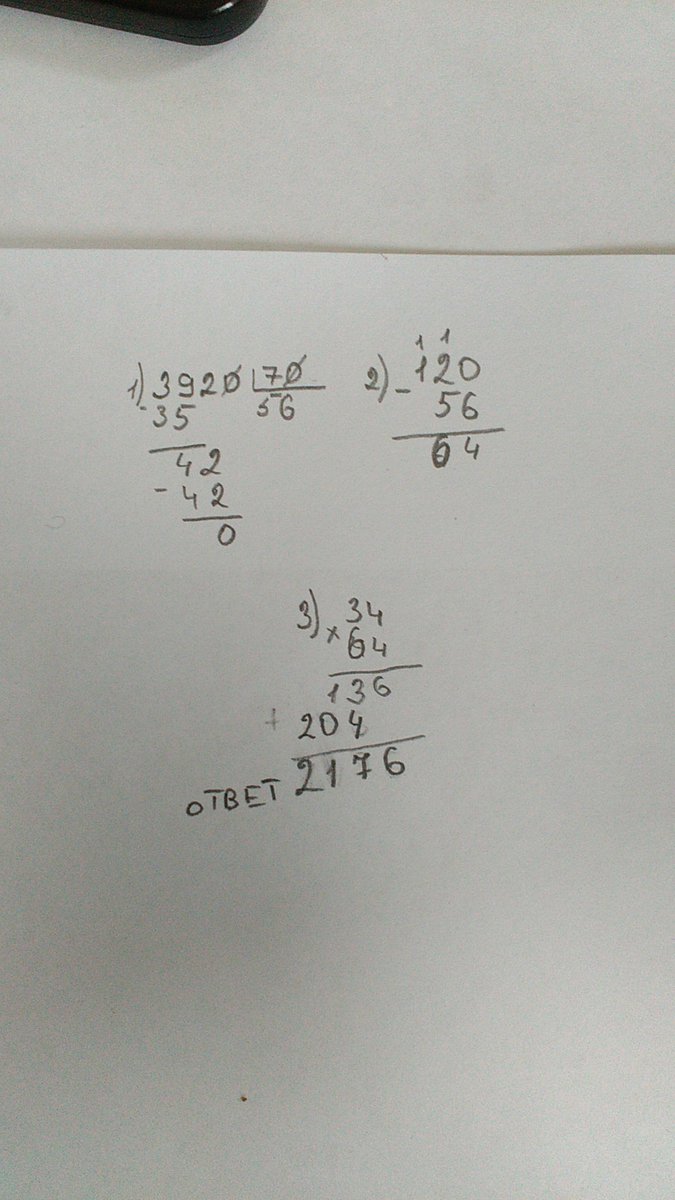 1) 3920 70
- 35 56
42
- 42
0
1 1
2) - 120
56
64
3) × 34
64
136
+ 204
ОТВЕТ 2176